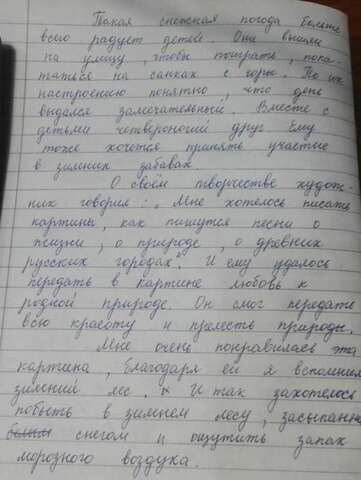 Такая снежная погода больше
всего радует детей. Они вышли
на улицу, чтобы поиграть, пока-
таться на санках с горы. По их
настроению понятно, что день
выдался замечательный. Вместе с
детьми четвероногий друг. Ему
тоже хочется принять участие
в зимних забавах
О своём творчестве худож-
ник говорил: "Мне хотелось писать
картины, как пишутся песни о
жизни, о природе, о древних
русских городах". И ему удалось
передать в картине любовь к
родной природе. Он смог передать
всю красоту и прелесть природы.
Мне очень понравилась эта
картина, благодаря ей я вспомнил
зимний лес. И так захотелось
побыть в зимнем лесу, засыпанном
снегом и ощутить запах
морозного воздуха.